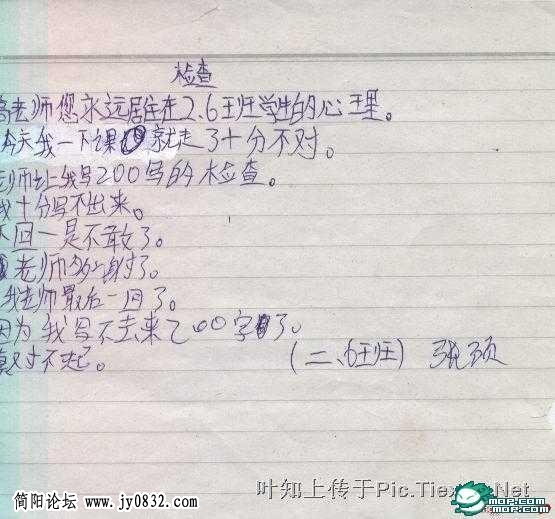 检查
高老师您永远居住在2.6班学生的心王里。
今天我一下课就走了十分不对。
老师让我写200写的检查。
我十分写不出来。
下回一是不敢了。
老师多谢了。
我老师最后一回了。
因为我写不去来200字了。
真对不起。
(二、6班) 张顽
叶知上传于Pic.Tiexue.Net
简阳论坛 www.jy0832.com
MOP.COM